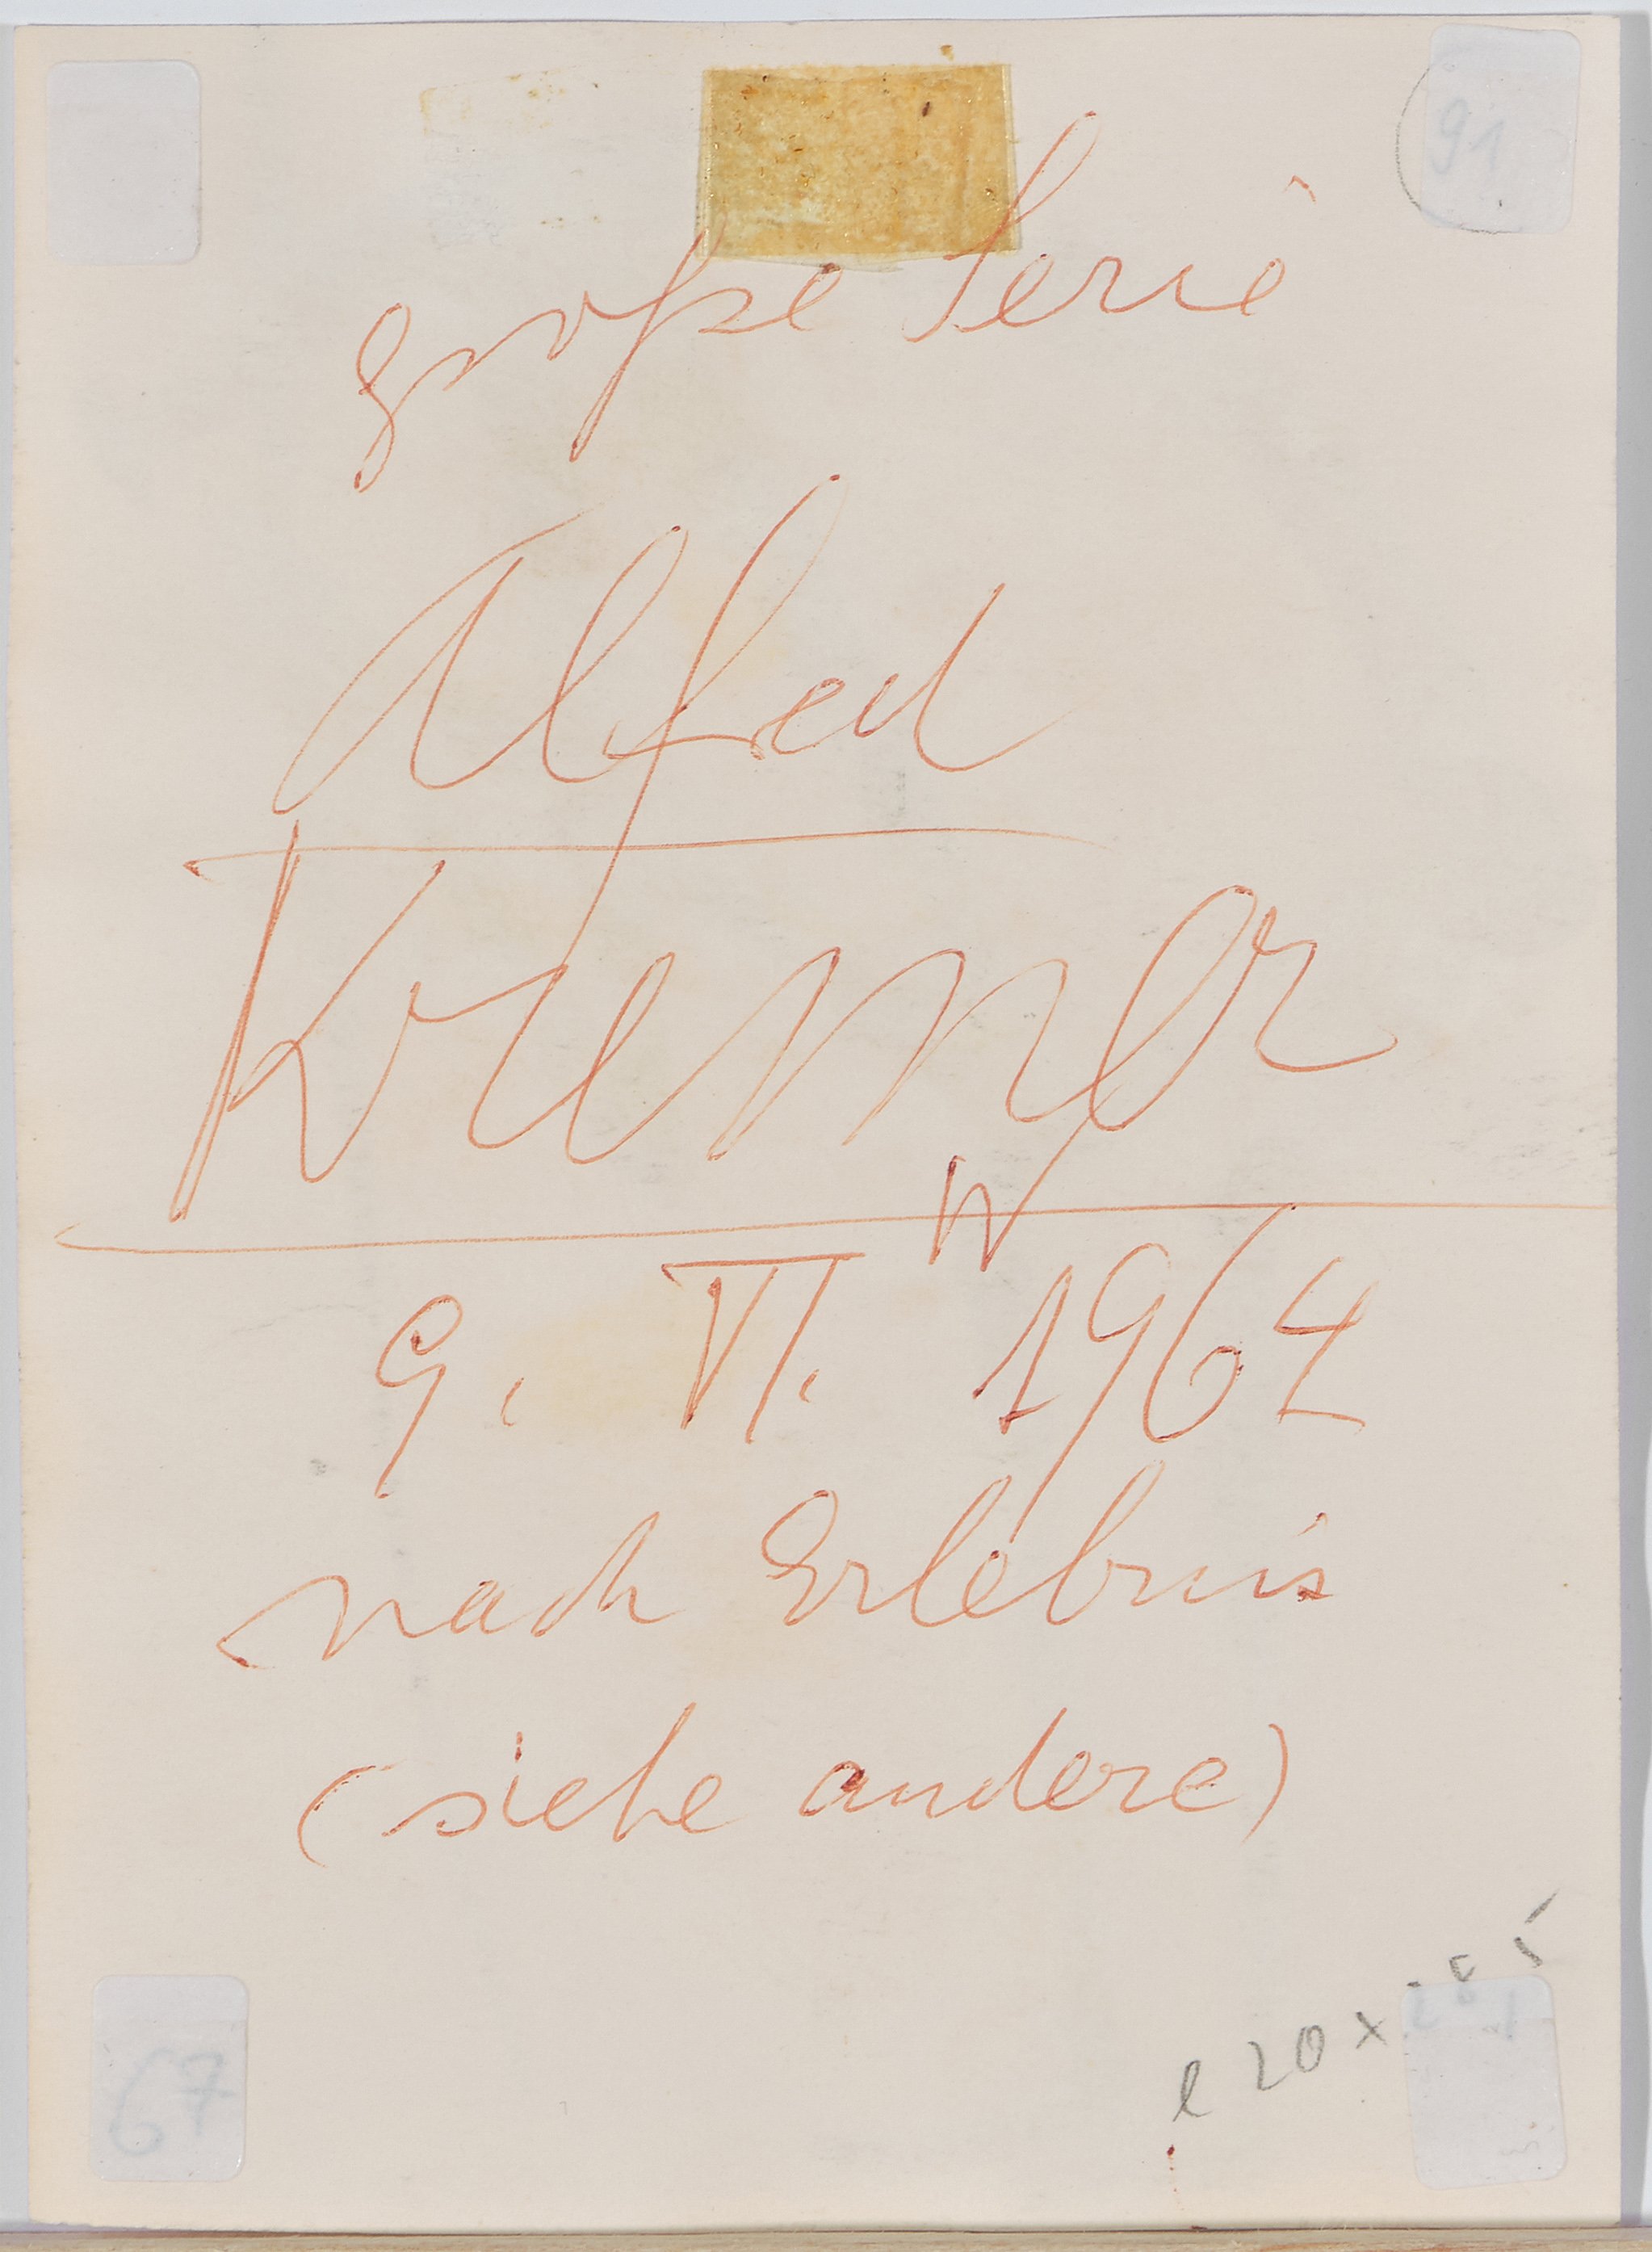 91
große Serie
Alfred
Kremer
W
9. VI. 1964
nach Erlebnis
(siehe andere)
67
l 20 x